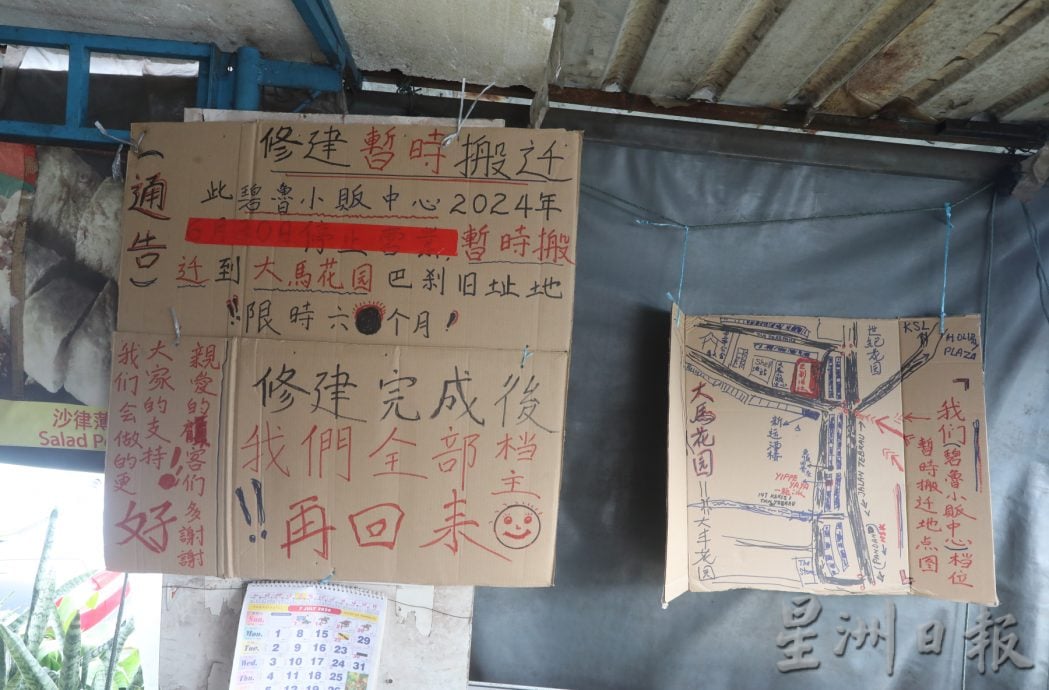 (通告)
修建暫時搬迁
此碧魯小販中心2024年
暫時搬
迁到大馬花园巴刹旧址地
!!限時六个月!
親愛的顧客们多謝謝
大家的支持!!
我们会做的更
好
修建完成後
我們全部档
主
!!再回来
沙律薄
Salad Po
7 JULY 2024
Sun.
Mon. 1 8 15 29
Tue. 2 9 16 23 30
Wed. 3 10 17 24 31
KSL
HOLIDAY
PLAZA
世纪花园
Shell
大馬花园
新运酒楼
YIPPE
YAYA
JALAN TEBRAU
「我们(碧魯小販中心)档位
暫時搬迁地点图
星洲日報